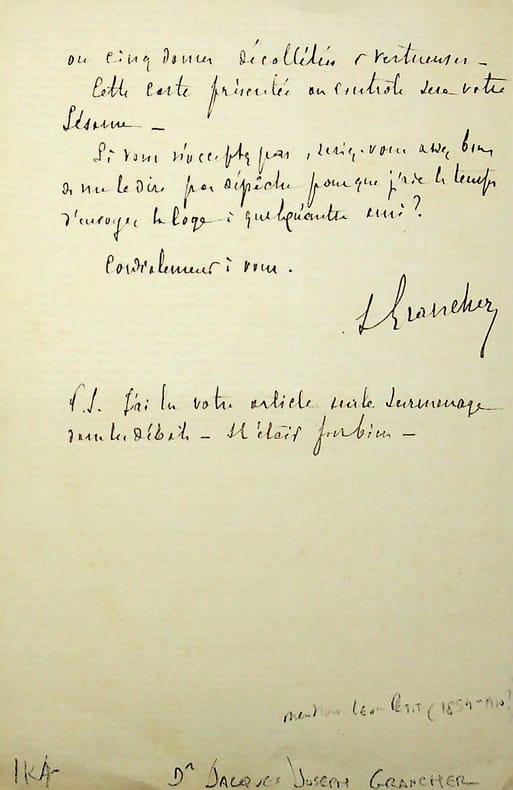 ou cinq dames décolletées & vertueuses —
Cette carte présentée au controle sera votre
Sésame —
Si vous n'acceptez pas, seriez-vous assez bon
de me le dire par dépêche pour que j'aie le temps
d'envoyer la loge à quelqu'autre ami ?
Cordialement à vous.
J Grancher
P.S. J'ai lu votre article sur le surmenage
dans les débats — C'était fort bien —
Léon Petit (1854-1910?
IKA
Dr JACQUES JOSEPH GRANCHER